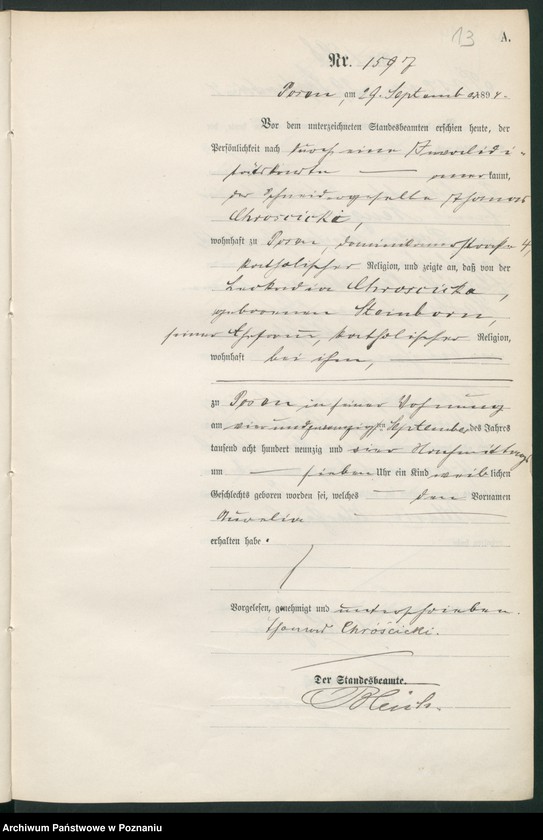 13 A.
Nr. 1597
Posen, am 29. September 1894.
Vor dem unterzeichneten Standesbeamten erschien heute, der
Persönlichkeit nach durch eine Invalidi-
tätskarte — anerkannt,
der Schneidergeselle Thomas
Chroscicki,
wohnhaft zu Posen, Dominikanerstraße 4,
katholischer Religion, und zeigte an, daß von der
Leokadia Chroscicka,
geborenen Steinborn,
seiner Ehefrau, katholischer Religion,
wohnhaft bei ihm,
zu Posen in seiner Wohnung
am vierundzwanzigsten September des Jahrs
tausend acht hundert neunzig und vier Nachmittags
um — sieben Uhr ein Kind weiblichen
Geschlechts geboren worden sei, welches — den Vornamen
Aurelia
erhalten habe.
Vorgelesen, genehmigt und unterschrieben.
Thomas Chrościcki.
Der Standesbeamte.
Archiwum Państwowe w Poznaniu